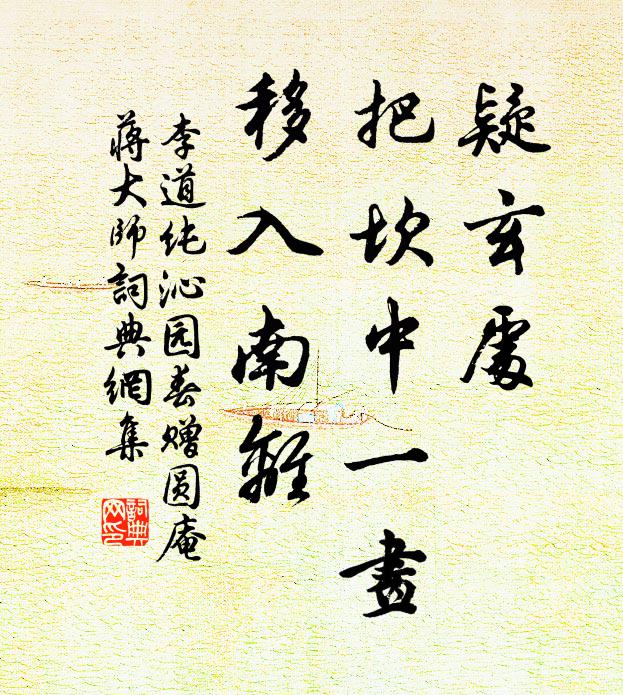 疑玄處
把坎中一畫
移入南離
李道纯沁园春赠圆庵
蒋大师詞典網集
詞典
网印